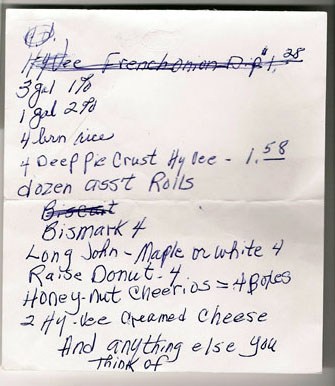 HyVee French Onion Dip $1.28
3 gal 1%
1 gal 2%
4 brn rice
4 Deep Pie Crust Hy Vee - 1.58
dozen asst Rolls
Biscuit
Bismark 4
Long John - Maple or white 4
Raise Donut - 4
Honey-nut Cheerios = 4 Boxes
2 Hy-Vee Creamed Cheese
And anything else you
think of